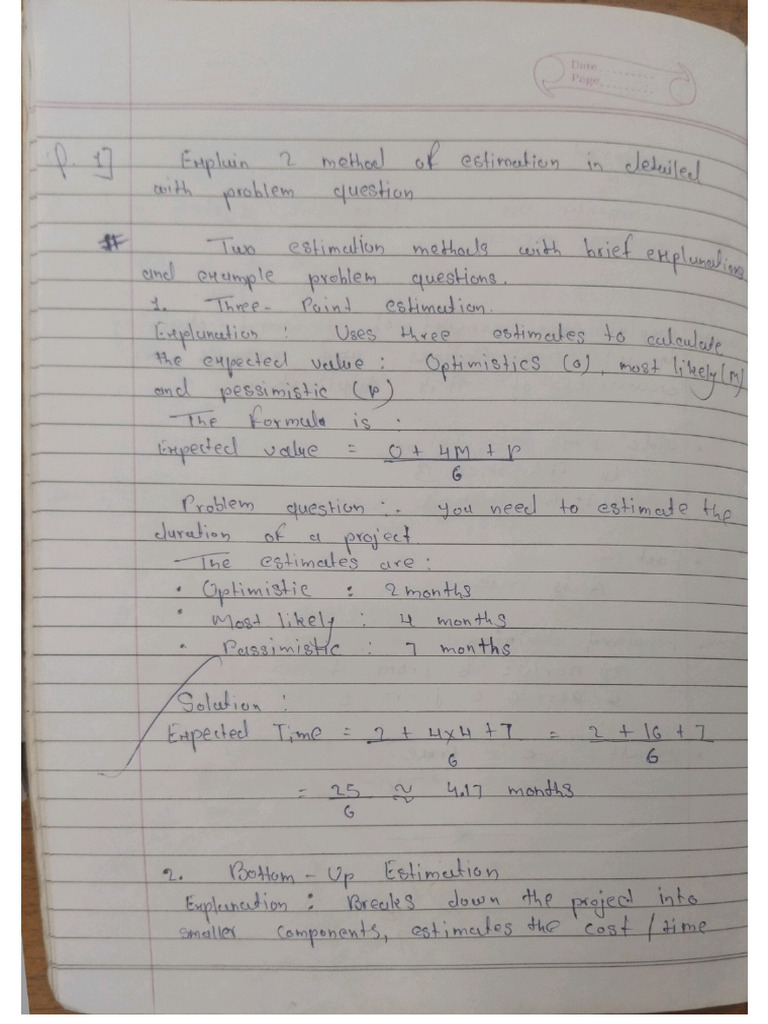 Date..........
Page..........
P. 1]  Explain 2 method of estimation in detailed
with problem question
# Two estimation methods with brief explunations
and example problem questions.
1. Three - Point estimation.
Explunation : Uses three estimates to calculate
the expected value : Optimistics (o), most likely (M)
and pessimistic (p)
The formula is :
Expected value = O + 4M + P
6
Problem question :- you need to estimate the
duration of a project
The estimates are :
• Optimistic : 2 months
• Most likely : 4 months
• Passimistic : 7 months
Solution :
Expected Time = 2 + 4x4 + 7 = 2 + 16 + 7
6 6
= 25 ≈ 4.17 months
6
2. Bottom - Up Estimation
Explunation : Breaks down the project into
smaller components, estimates the cost / time